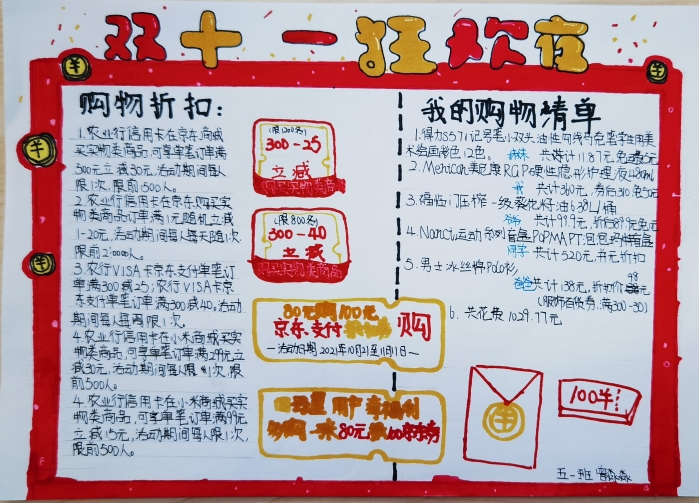 双十一狂欢夜
购物折扣:
1.农业行信用卡在京东商城
买实物类商品,可享单笔订单满
300元立减30元,活动期间每人
限1次,限前500人。
2.农业行信用卡在京东购买实
物类商品订单满1元随机立减
1-20元,活动期间每人每天随1次,
限前20000人。
3.农行VISA卡京东支付单笔订
单满300减25;农行VISA卡京
东支付单笔订单满300减40。活动
期间每人每周限1次。
4.农业行信用卡在小米商城买实
物类商品,可享单笔订单满299元立
减30元,活动期间每人限1次,限
前500人。
4.农业行信用卡在小米商城买实
物类商品,可享单笔订单满99元
立减15元,活动期间每人限1次,
限前500人。
(限1200名)
300-25
立减
购买实物类商品
(限800名)
300-40
立减
购买实物类商品
80元购100元
京东支付
购
—活动日期 2021年10月21至11月11日—
用户享福利
80元
100元
我的购物清单
1.得力S571记号笔小双头油性勾线马克笔学生用美
术绘画彩色12色。
共计11.87元,免运费5元
2.Menicon美尼康RGP硬性隐形护理液480ml
我 共计360元,券后310免50元
3.福临门压榨一级葵花籽油6.28L/桶
爷爷 共计99.9元,折后89.9元免
4.Nanci
盲盒POPMAPT
共计520元,并无折扣
5.男士冰丝棉Polo衫
爸爸 共计138元,折扣价98元
(服饰百货券:满300-30)
6.共花费1029.77元
100
五一班